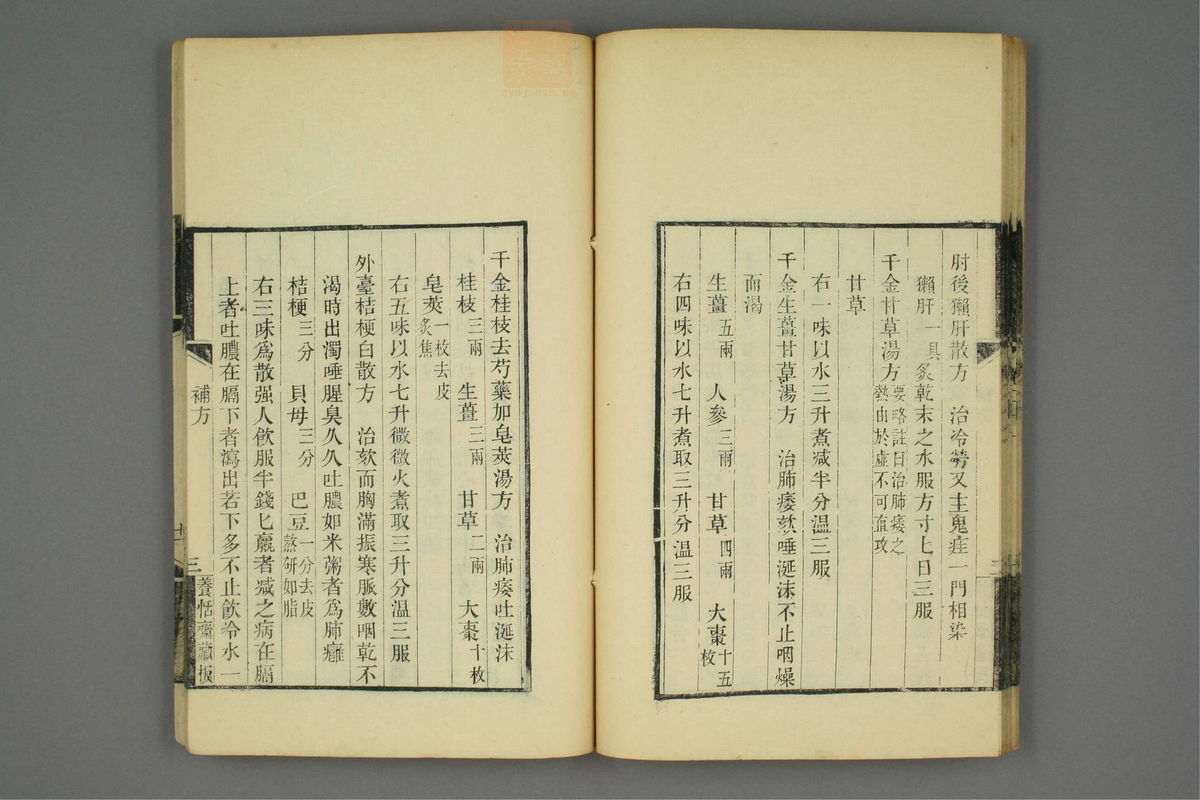 肘後獺肝散方　治冷勞又主鬼疰一門相染
獺肝一具炙乾末之水服方寸匕日三服
千金甘草湯方要略註曰治肺痿之
熱由於虛不可直攻
甘草
右一味以水三升煮減半分溫三服
千金生薑甘草湯方　治肺痿欬唾涎沫不止咽燥
而渴
生薑五兩　人參三兩　甘草四兩　大棗十五
枚
右四味以水七升煮取三升分溫三服
千金桂枝去芍藥加皂莢湯方　治肺痿吐涎沫
桂枝三兩　生薑三兩　甘草二兩　大棗十枚
皂莢一枚去皮
炙焦
右五味以水七升微微火煮取三升分溫三服
外臺桔梗白散方　治欬而胸滿振寒脈數咽乾不
渴時出濁唾腥臭久久吐膿如米粥者爲肺癰
桔梗三分　貝母三分　巴豆一分去皮
熬研如脂
右三味爲散强人飲服半錢匕羸者減之病在膈
上者吐膿在膈下者瀉出若下多不止飲冷水一
補方
三
養恬齋藏板